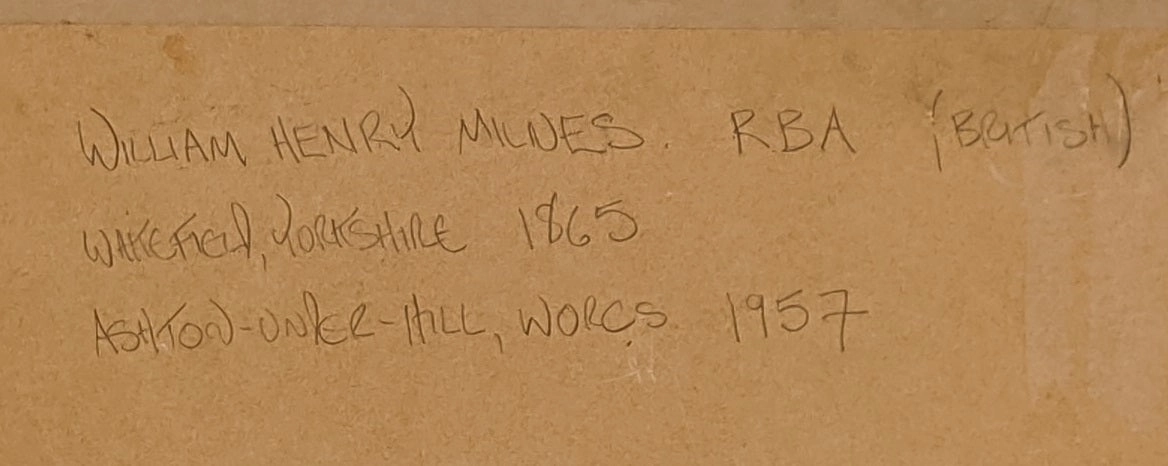 WILLIAM HENRY MILNES. RBA (BRITISH)
WAKEFIELD, YORKSHIRE 1865
ASHTON-UNDER-HILL, WORCS 1957